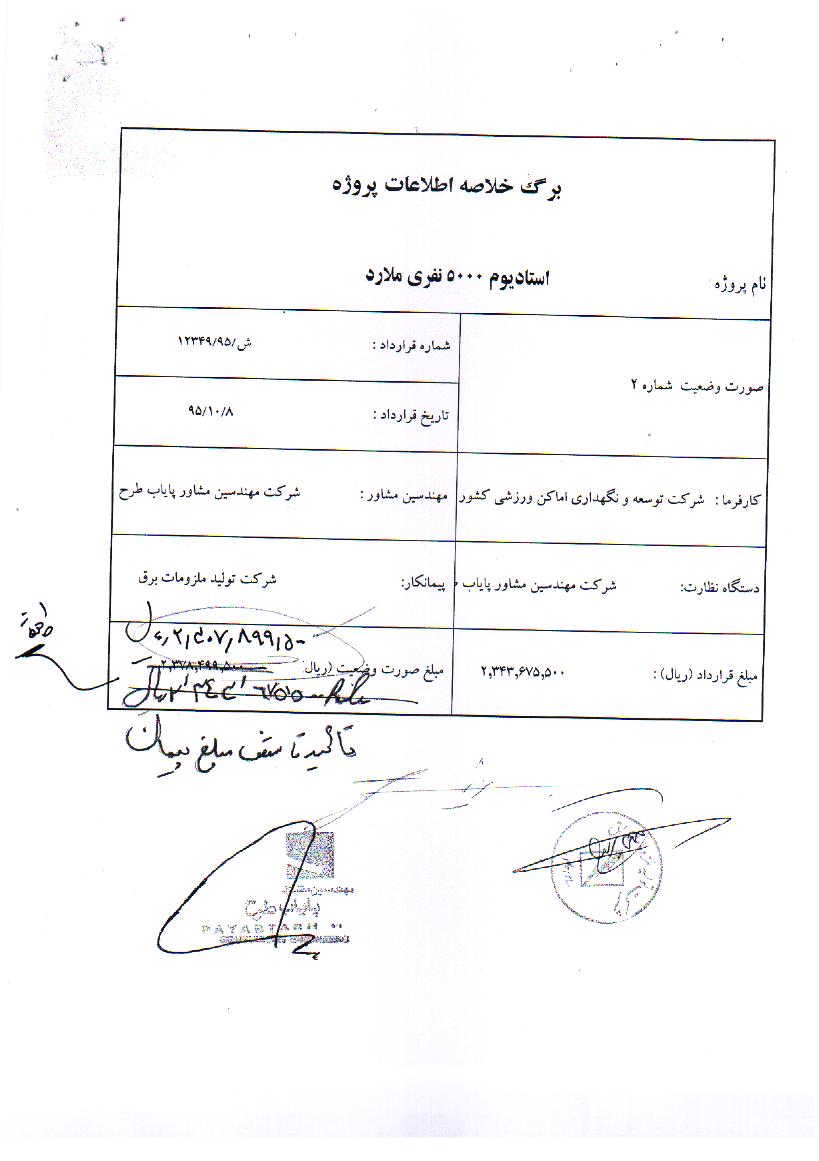 برگ خلاصه اطلاعات پروژه
نام پروژه: استادیوم ۵۰۰۰ نفری ملارد
صورت وضعیت شماره ۲
شماره قرارداد : ش/۱۲۳۴۹/۹۵
تاریخ قرارداد : ۹۵/۱۰/۸
کارفرما : شرکت توسعه و نگهداری اماکن ورزشی کشور
مهندسین مشاور : شرکت مهندسین مشاور پایاب طرح
دستگاه نظارت: شرکت مهندسین مشاور پایاب
پیمانکار: شرکت تولید ملزومات برق
مبلغ قرارداد (ریال) : ۲,۳۴۳,۶۷۵,۵۰۰
۲,۲۰۷,۸۹۹,۵۰۰
مبلغ صورت وضعیت (ریال: ۲,۳۷۸,۴۹۹,۵۰۰
تائید تا سقف مبلغ پیمان
مهندسین مشاور
پایاب طرح
PAYABTARH